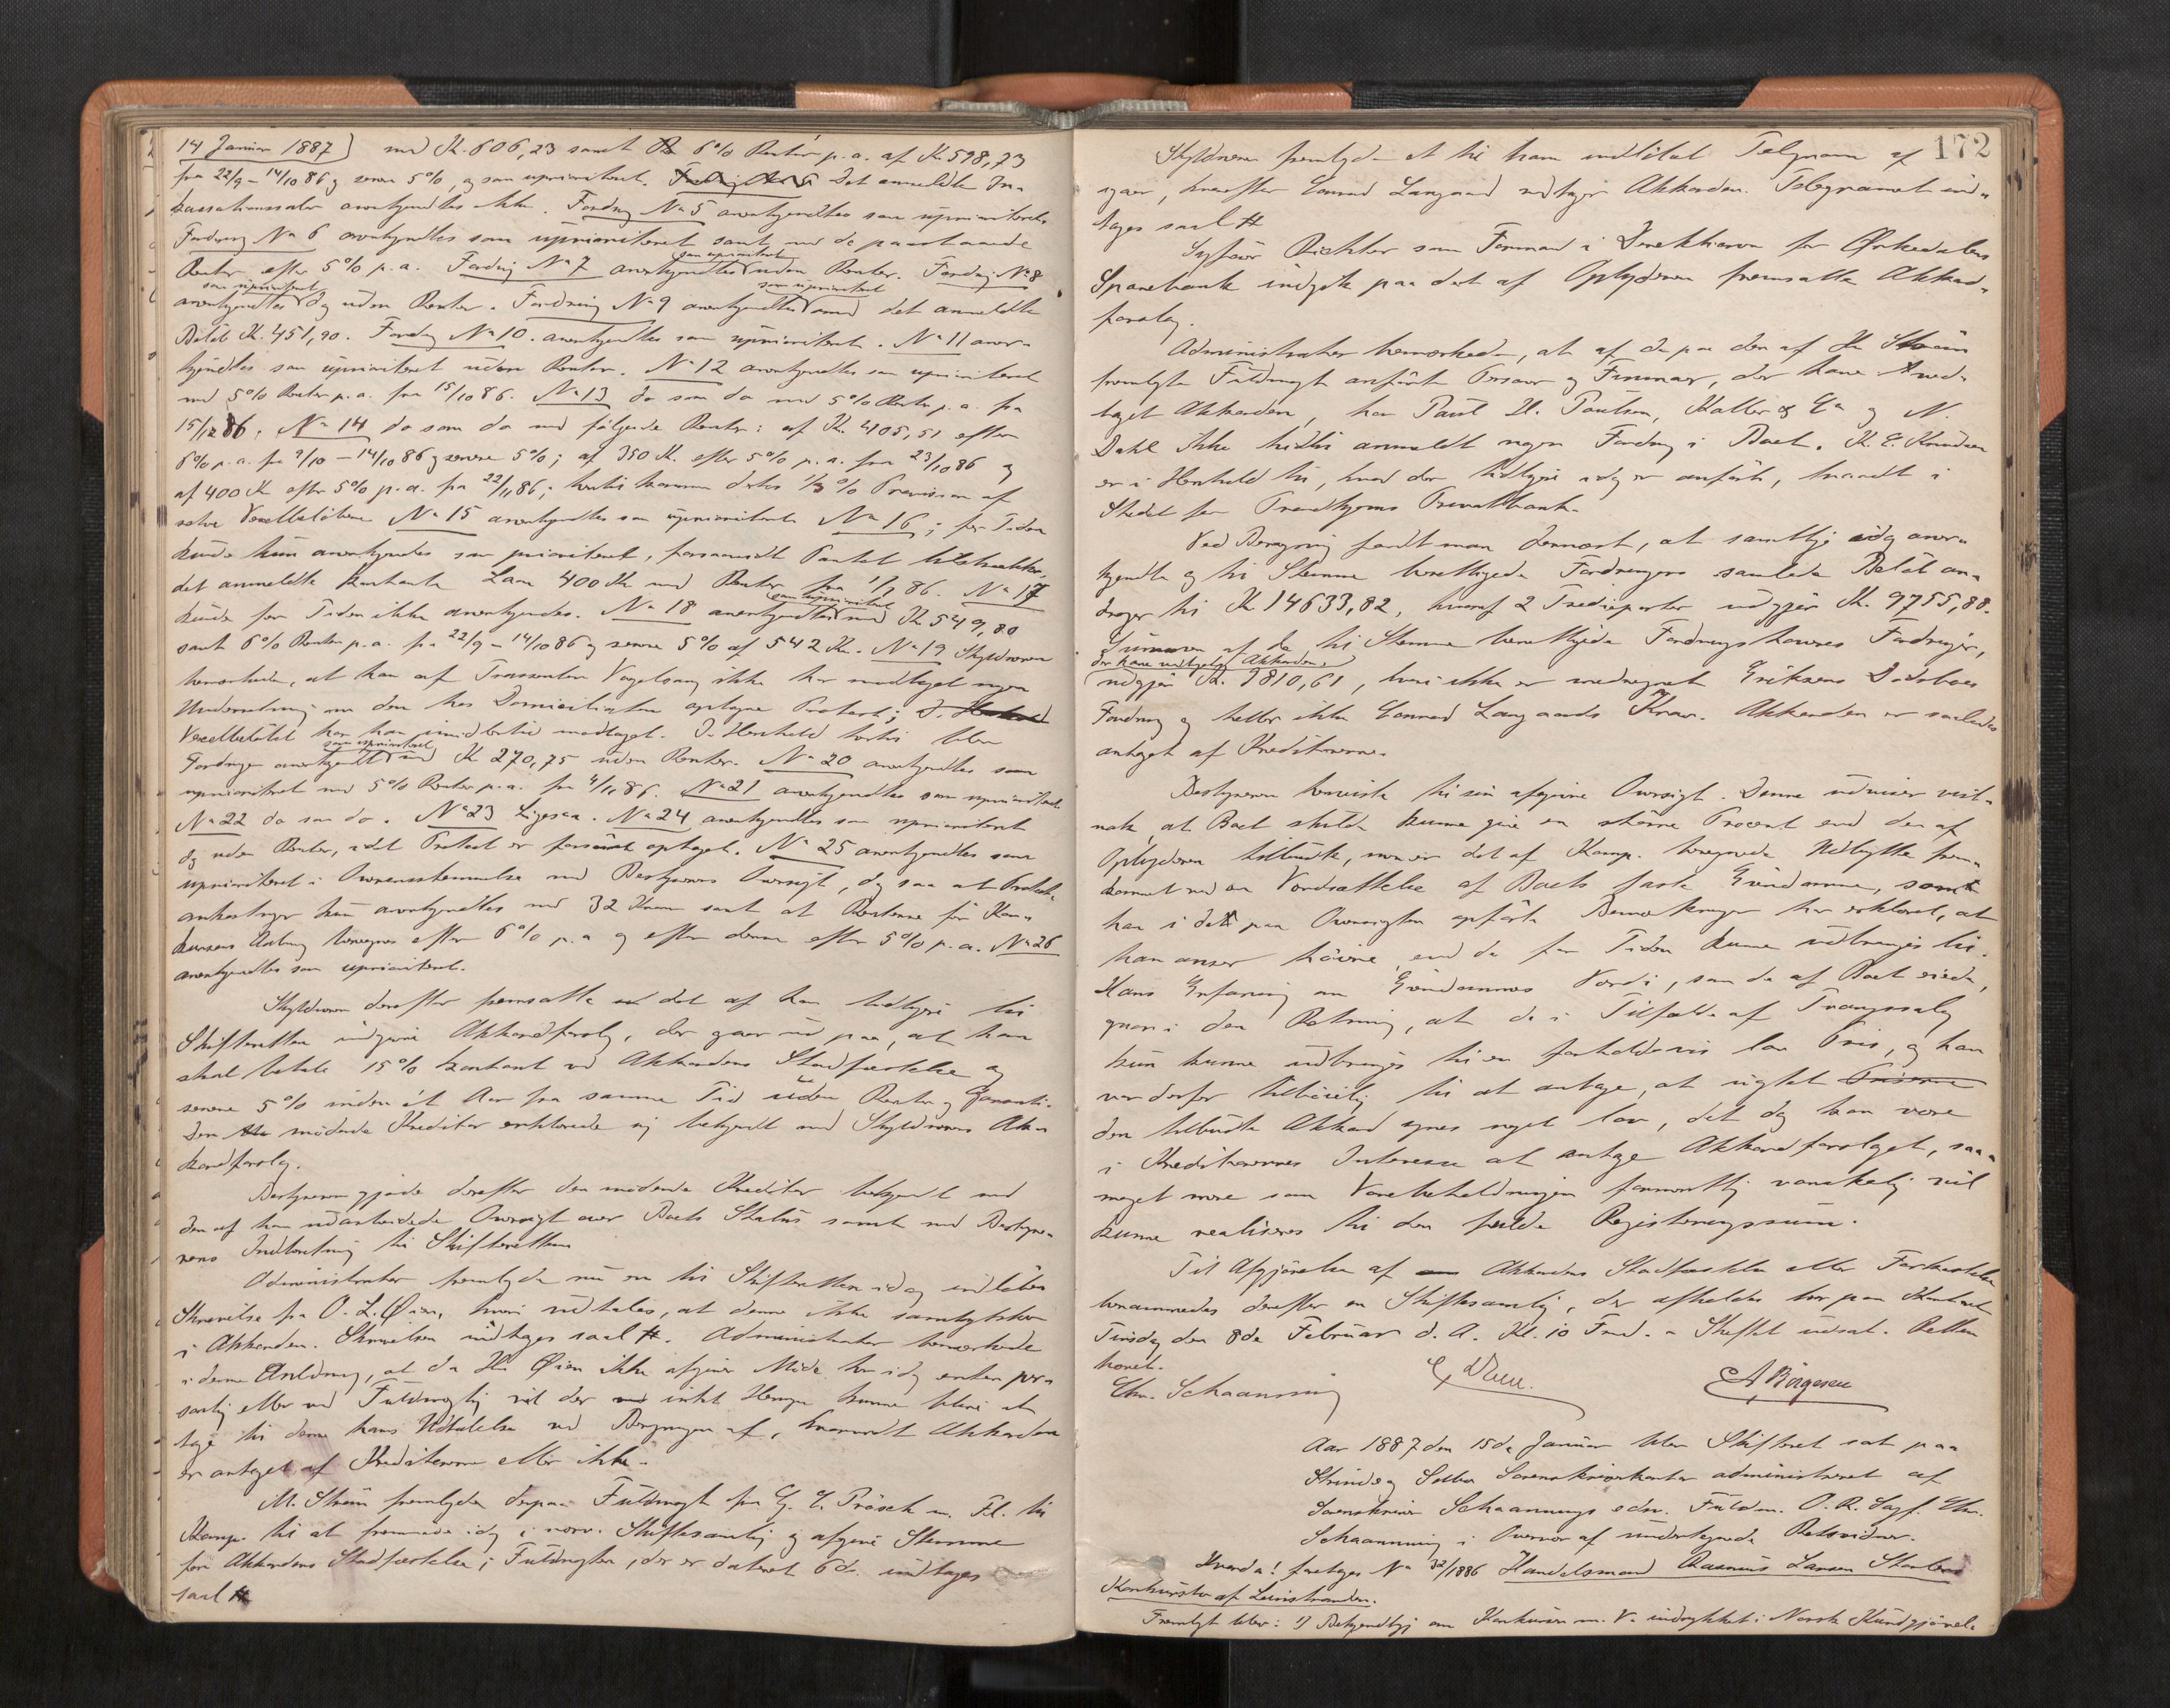 14 Januar 1887) med Kr. 606,23 samt 6% Renter p.a. af Kr. 598,73
fra 22/9 - 14/10 86 og senere 5%, og som uprioriteret. Det anmeldte In-
kassationssalær anerkjendtes ikke. Fordring No 5 anerkjendtes som uprioriteret.
Fordring No 6 anerkjendtes som uprioriteret samt med de paastaaede
Renter efter 5% p.a. Fordring No 7 anerkjendtes som uprioriteret uden Renter. Fordring No 8
anerkjendtes som uprioriteret og uden Renter. Fordring No 9 anerkjendtes som uprioriteret med det anmeldte
Beløb Kr. 451,90. Fordring No 10. anerkjendtes som uprioriteret. No 11 aner-
kjendtes som uprioriteret uden Renter. No 12 anerkjendtes som uprioriteret
med 5% Renter p.a. fra 15/10 86. No 13 do som do med 5% Renter p.a. fra
15/12 86. No 14 do som do med følgende Renter: af Kr. 4105,51 efter
6% p.a. fra 9/10 - 14/10 86 og senere 5%; af 350 Kr. efter 5% p.a. fra 23/10 86 og
af 400 Kr efter 5% p.a. fra 22/11 86; hertil kommer derhos 1/3 % Provision af
selve Vexelbeløbene No 15 anerkjendtes som uprioriteret No 16; for Tiden
kunde kun anerkjendes som prioriteret, forsaavidt Pantet tilstrækker,
det anmeldte kontante Laan 400 Kr med Renter fra 1/7 86. No 17
kunde for Tiden ikke anerkjendes. No 18 anerkjendtes som uprioriteret med Kr 549,80
samt 6% Renter p.a. fra 22/9 - 14/10 86 og senere 5% af 542 Kr. No 19 Skyldneren
bemærkede, at han af Trassenten Vogelsang ikke har modtaget nogen
Underretning om den hos Domiciliaten optagne Protest;
Vexelbeløbet har han imidlertid modtaget. I Henhold hertil blev
Fordringen anerkjendt som uprioriteret med Kr 270,75 uden Renter. No 20 anerkjendtes som
uprioriteret med 5% Renter p.a. fra 4/11 86. No 21 anerkjendtes som uprioriteret
No 22 do som do. No 23 Ligesaa. No 24 anerkjendtes som uprioriteret
og uden Renter, idet Protest er forsent optaget. No 25 anerkjendtes som
uprioriteret i Overensstemmelse med Bestyrerens Oversigt, dog saa at Protest-
omkostninger kun anerkjendtes med 32 Kroner samt at Renterne før Kon-
kursens Aabning beregnes efter 6% p.a og efter denne efter 5% p.a. No 26
anerkjendtes som uprioriteret.
Skyldneren derefter fremsatte det af ham tidligere til
Skifteretten indgivne Akkordforslag, der gaar ud paa, at han
skal betale 15% kontant ved Akkordens Stadfæstelse og
senere 5% inden et Aar fra samme Tid uden Renter og Garanti.
Den mødende Kreditor erklærede sig bekjendt med Skyldnerens Ak-
kordforslag.
Bestyreren gjorde derefter den mødende Kreditor bekjendt med
den af ham udarbeidede Oversigt over Boets Status samt med Bestyre-
rens Indberetning til Skifteretten
Administrator fremlagde nu en til Skifteretten idag indløben
Skrivelse fra O. L. Øien, hvori udtales, at denne ikke samtykker
i Akkorden. Skrivelsen indtages saal. #. Administrator bemærkede
i denne Anledning, at da Hr Øien ikke afgiver Møde her idag enten per-
sonlig eller ved Fuldmægtig vil der intet Hensyn kunne blive at
tage til denne hans Udtalelse ved Beregningen af, hvorvidt Akkorden
er antaget af Kreditorerne eller ikke.
M. Strøm fremlagde derpaa Fuldmagt fra G. E. Prösch m. Fl. til
Komp. til at fremmøde idag i nærv. Skiftesamling og afgive Stemme
for Akkordens Stadfæstelse; Fuldmagten, der er dateret 6de. indtages
saal #

172
Skyldneren fremlagde et til ham indløbet Telegram af
igaar, hvorefter Conrad Langaard vedtager Akkorden. Telegramet ind-
tages saal #
Sagfører Richter som Formand i Direktionen for Ørkedalens
Sparebank indgik paa det af Opbyderen fremsatte Akkord-
forslag.
Administrator bemærkede, at af de paa den af Hr Strøm
fremlagte Fuldmagt anførte Personer og Firmaer, der have ved-
taget Akkorden, har Paul H. Poulsen, Koller & Co og N.
Dahl ikke hidtil anmeldt nogen Fordring i Boet. K. E. Knudsen
er i Henhold til, hvad der tidligere idag er anført, traadt i
Stedet for Trondhjems Privatbank.
Ved Beregning fandt man dernæst, at samtlige idag aner-
kjendte og til Stemme berettigede Fordringers samlede Beløb an-
drager til Kr. 14633,82, hvoraf 2 Trediepart udgjør Kr. 9755,88.
Summen af de til Stemme berettigede Fordringshaveres Fordringer,
der have vedtaget Akkorden,
udgjør Kr. 9810,61, hvori ikke er medregnet Eriksens Dødsboes
Fordring og heller ikke Conrad Langaards Krav. Akkorden er saaledes
antaget af Kreditorerne.
Bestyreren henviste til sin afgivne Oversigt. Denne udviser vist-
nok, at Boet skulde kunne give en større Procent end den af
Opbyderen tilbudte, men er det af Komp. beregnede Udbytte frem-
kommet ved en Værdsættelse af Boets faste Eiendomme, som
han i de paa Oversigten opførte Bemærkninger har erklæret, at
han anser høiere, end de for Tiden kunne udbringes til.
Hans Erfaring om Eiendommes Værdi, som de af Boet eiede,
gaar i den Retning, at de i Tilfælde af Tvangssalg
kun kunne udbringes til en forholdsvis lav Pris, og han
var derfor tilbøielig til at antage, at uagtet
den tilbudte Akkord synes noget lav, det dog kan være
i Kreditorernes Interesse at antage Akkordforslaget, saa-
meget mere som Varebeholdningen formentlig vanskelig vil
kunne realiseres til den fulde Registreringssum.
Til Afgjørelse af Akkordens Stadfæstelse eller Forkastelse
berammedes derefter en Skiftesamling, der afholdes her paa Kontoret
Tirsdag den 8de Februar d. A. Kl. 10 Fmd. - Skiftet udsat. Retten
hævet.
Chr. Schaanning
A Børgesen
Aar 1887 den 15de Januar blev Skifteret sat paa
Strinde og Selbu Sorenskriverkontor administreret af
Sorenskriver Schaannings edsv. Fuldm. O. R. Sagf. Chr.
Schaanning i Overvær af undertegnede Retsvidner.
Hvorda! foretages No 32/1886 Handelsmand Rasmus Larsen
Konkursbo af Leinstranden.
Fremlagt blev: 1) Bekjendtgj om Konkursen m. V. indrykket i Norske Kundgjørels